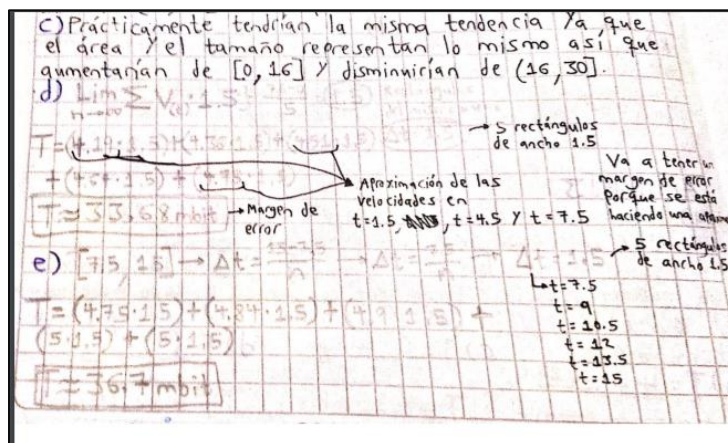 c) Prácticamente tendrían la misma tendencia ya que
el área y el tamaño representan lo mismo así que
aumentarían de [0,16] y disminuirían de (16,30].
d) Lim Σ V(t) · 1.5
n→∞
→ 5 rectángulos
de ancho 1.5
T = (4.19 · 1.5) + (4.36 · 1.5) + (4.51 · 1.5)
+ (4.64 · 1.5) +
Aproximación de las
velocidades en
t=1.5, t=4.5 y t=7.5
Va a tener un
margen de error
porque se está
haciendo una
T ≈ 33.68 mbit → Margen de
error
e) [7.5, 15] → Δt = → Δt = → Δt = 1.5
→ 5 rectángulos
de ancho 1.5
t=7.5
t=9
t=10.5
t=12
t=13.5
t=15
T = (4.75 · 1.5) + (4.84 · 1.5) + (4.9 · 1.5) +
(5 · 1.5) + (5 · 1.5)
T ≈ 36.7 mbit